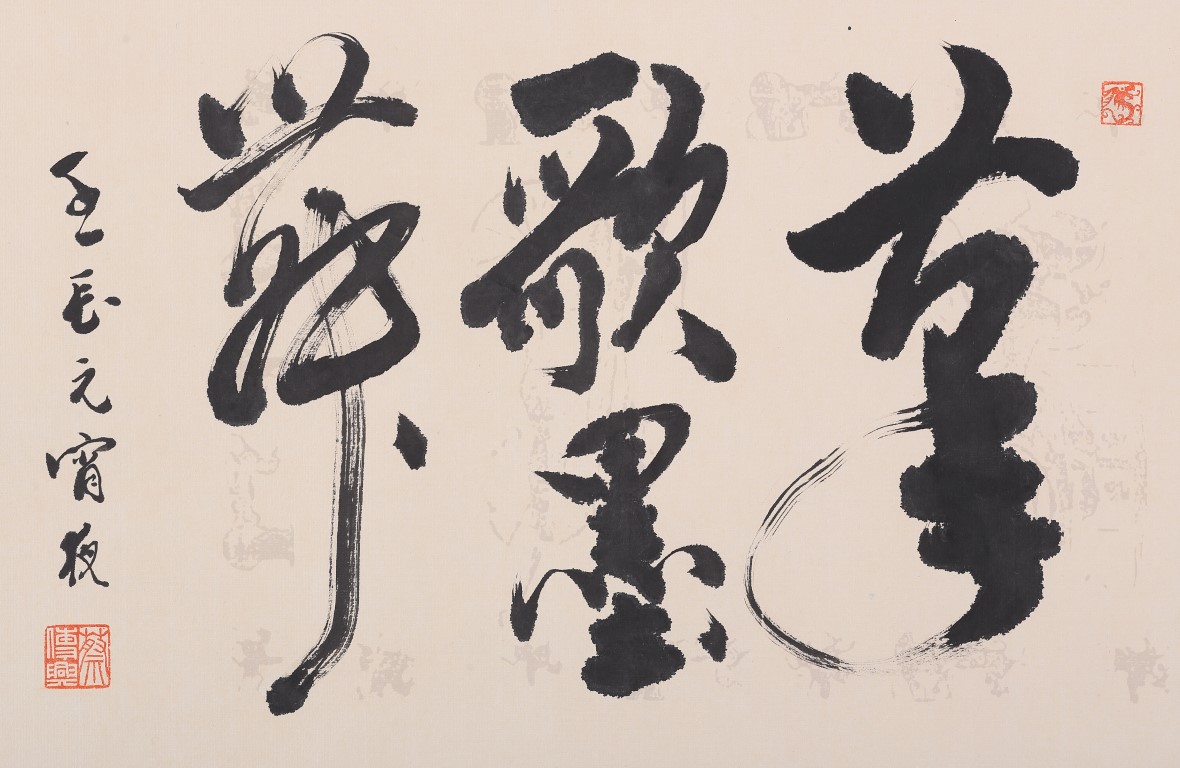 筆
歌墨
舞
壬辰元宵夜
蔡傳興